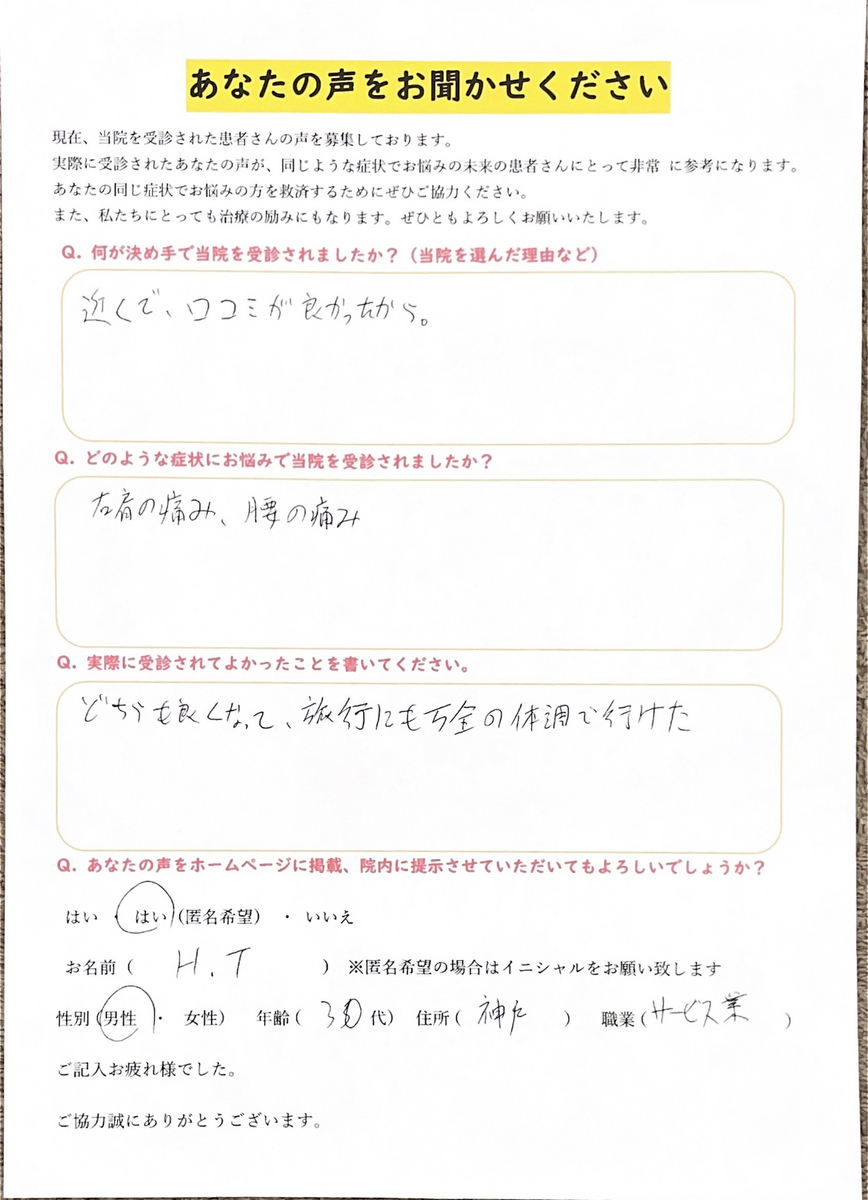 あなたの声をお聞かせください
現在、当院を受診された患者さんの声を募集しております。
実際に受診されたあなたの声が、同じような症状でお悩みの未来の患者さんにとって非常 に参考になります。
あなたの同じ症状でお悩みの方を救済するためにぜひご協力ください。
また、私たちにとっても治療の励みにもなります。ぜひともよろしくお願いいたします。
Q. 何が決め手で当院を受診されましたか？（当院を選んだ理由など）
近くで、口コミが良かったから。
Q. どのような症状にお悩みで当院を受診されましたか？
右肩の痛み、腰の痛み
Q. 実際に受診されてよかったことを書いてください。
どちらも良くなって、旅行にも万全の体調で行けた
Q. あなたの声をホームページに掲載、院内に提示させていただいてもよろしいでしょうか？
はい ・ はい（匿名希望） ・ いいえ
お名前（ H.T ） ※匿名希望の場合はイニシャルをお願い致します
性別（男性 ・ 女性） 年齢（ 30代） 住所（ 神戸 ） 職業（サービス業 ）
ご記入お疲れ様でした。
ご協力誠にありがとうございます。